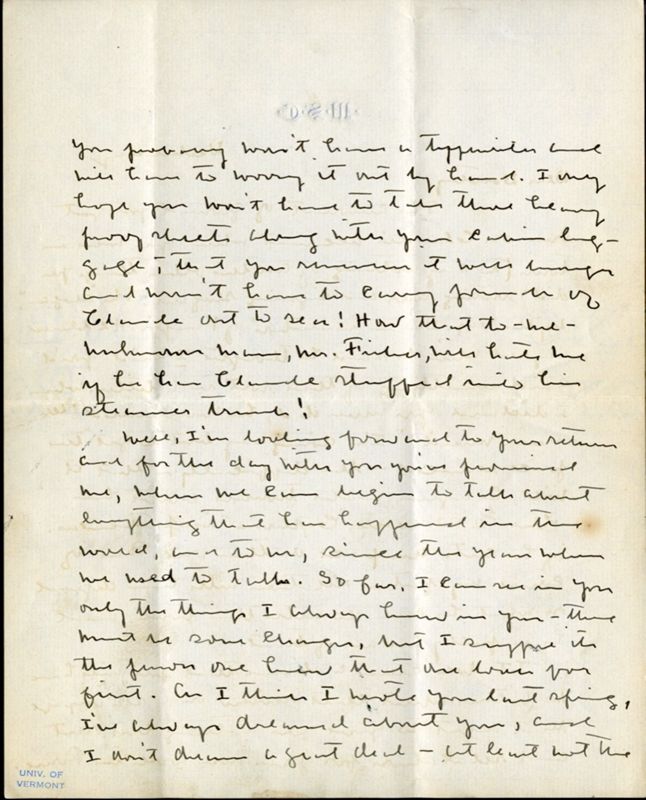 you probably won't have a typewriter and
will have to worry it out by hand. I only
hope you won't have to take those heavy
proof sheets along with your cabin lug-
gage; that you receive it well enough
and won't have to carry pounds of
Claude out to sea! How that to-me-
unknown man, Mr. Fisher, will hate me
if he has Claude stuffed into his
steamer trunk!
Well, I'm looking forward to your return
and for the day with you you've promised
me, when we can begin to talk about
everything that has happened in the
world, and to us, since the years when
we used to talk. So far, I can see in you
only the things I always knew in you - there
must be some changes, but I suppose it's
the person one knew that one looks for
first. As I think I wrote you last spring,
I've always dreamed about you, and
I don't dream a great deal - at least not the
UNIV. OF
VERMONT